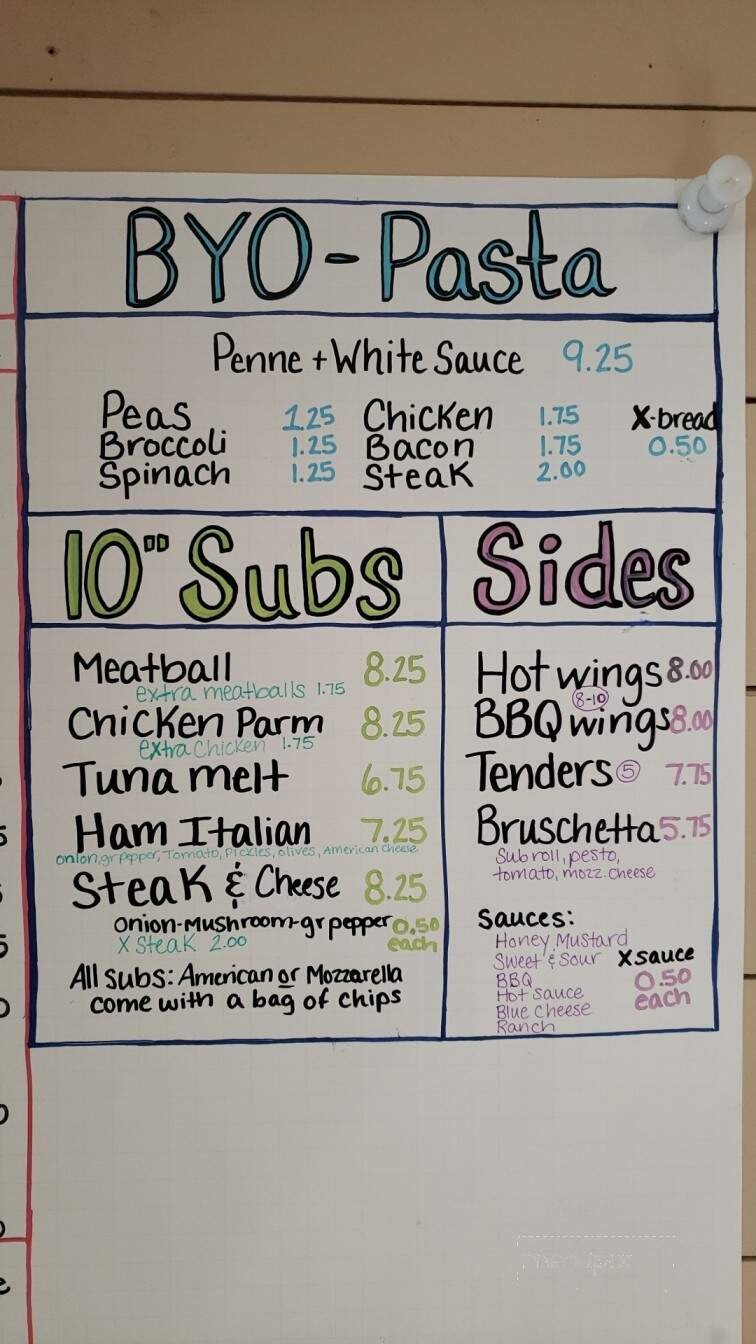 BYO-Pasta
Penne + White Sauce 9.25
Peas 1.25 Chicken 1.75 X-bread
Broccoli 1.25 Bacon 1.75 0.50
Spinach 1.25 Steak 2.00
10" Subs
Meatball 8.25
extra meatballs 1.75
Chicken Parm 8.25
extra Chicken 1.75
Tuna melt 6.75
Ham Italian 7.25
onion, gr pepper, Tomato, Pickles, olives, American cheese
Steak & Cheese 8.25
onion-mushroom-gr pepper 0.50
X Steak 2.00 each
All subs: American or Mozzarella
come with a bag of chips
Sides
Hot wings 8.00
8-10
BBQ wings 8.00
Tenders 5 7.75
Bruschetta 5.75
Sub roll, pesto,
tomato, mozz. cheese
Sauces:
Honey Mustard
Sweet & Sour X sauce
BBQ 0.50
Hot sauce each
Blue cheese
Ranch